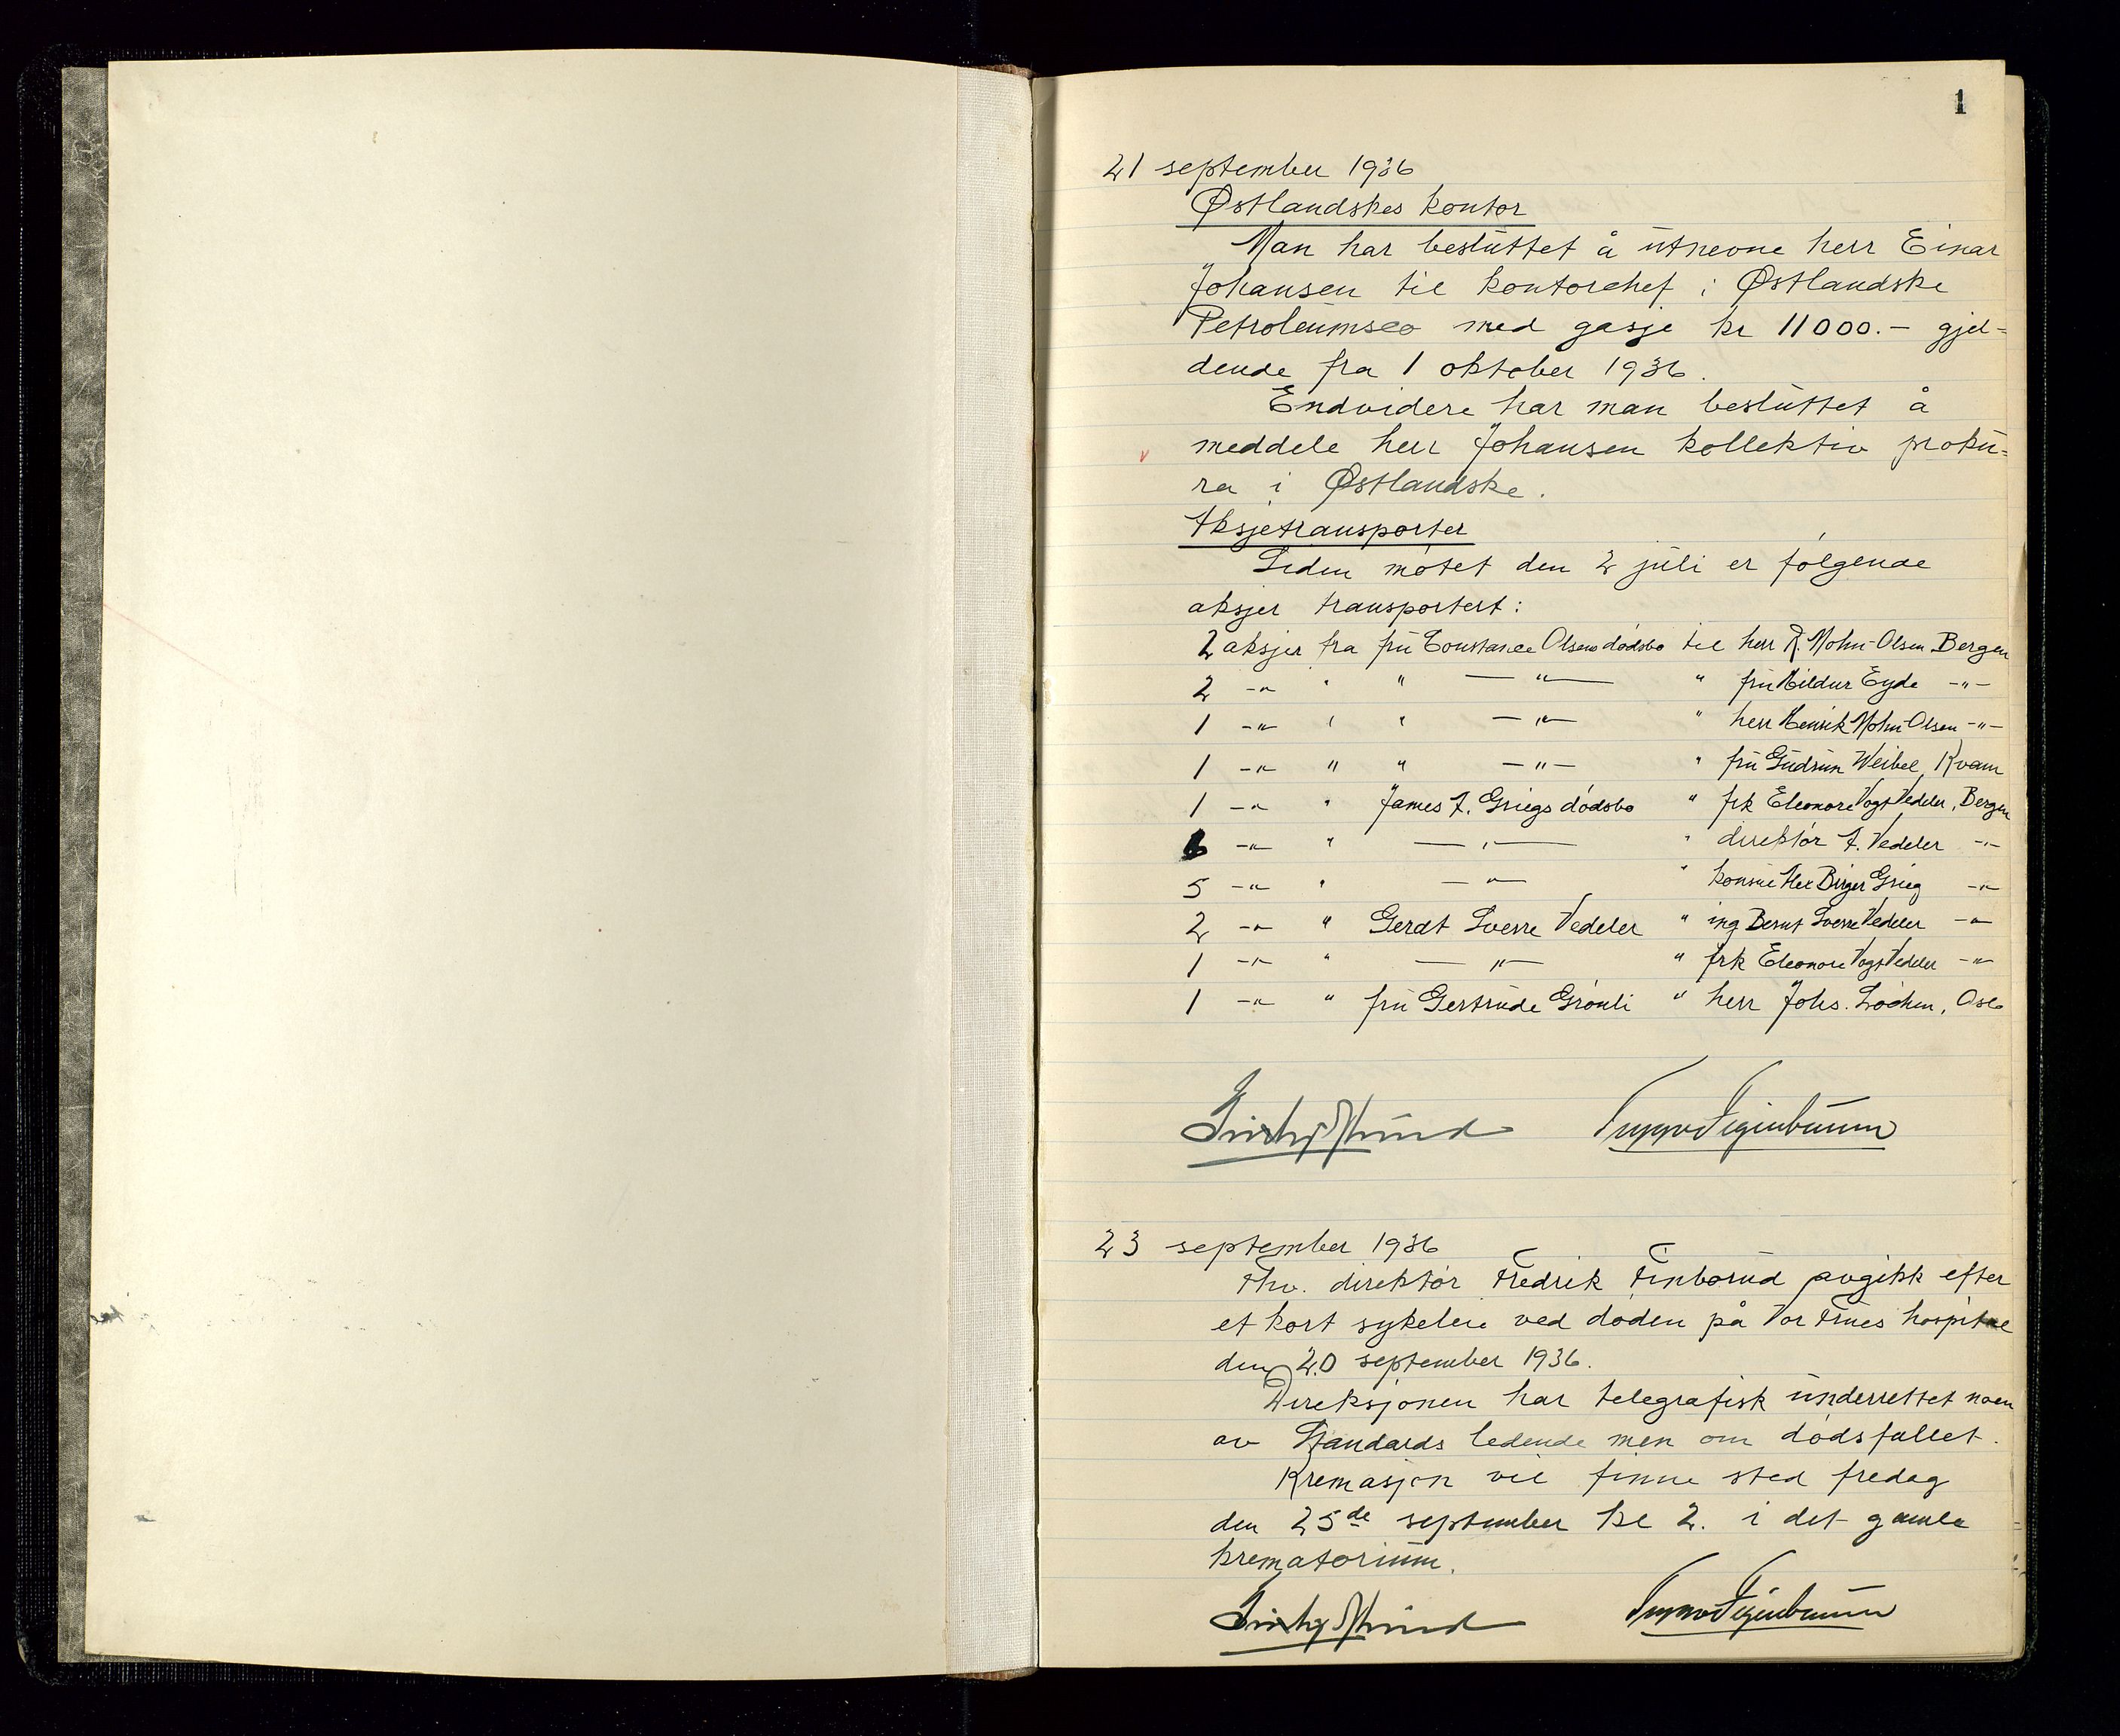 1
21 september 1936
Østlandskes kontor
Man har besluttet å utnevne herr Einar
Johansen til kontorchef i Østlandske
Petroleumsco med gasje kr 11000.- gjel=
dende fra 1 oktober 1936.
Endvidere har man besluttet å
meddele herr Johansen kollektiv proku=
ra i Østlandske.
Aksjetransporter
Siden møtet den 2 juli er følgende
aksjer transportert:
2 aksjer fra fru Constance Olsens dødsbo til herr R. Mohn-Olsen Bergen
2 -"- " " -"- " fru Hildur Eyde -"-
1 -"- " " -"- " herr Henrik Mohn-Olsen -"-
1 -"- " " -"- " fru Gudrun Weibel, Kvam
1 -"- " James A. Griegs dødsbo " frk Eleonore Vogt Vedeler, Bergen
6 -"- " -"- " direktør A. Vedeler -"-
5 -"- " -"- " konsul Alex Birger Grieg -"-
2 -"- " Gerdt Sverre Vedeler " ing Bernt Sverre Vedeler -"-
1 -"- " -"- " frk Eleonore Vogt Vedeler -"-
1 -"- " fru Gertrude Grønli " herr Johs. Løchen, Oslo
23 september 1936
Fhv. direktør Fredrik Finborud avgikk efter
et kort sykeleie ved døden på Vor Frues hospital
den 20 september 1936.
Direksjonen har telegrafisk underrettet noen
av Standards ledende men om dødsfallet.
Kremasjon vil finne sted fredag
den 25de september kl 2. i det gamle
krematorium.